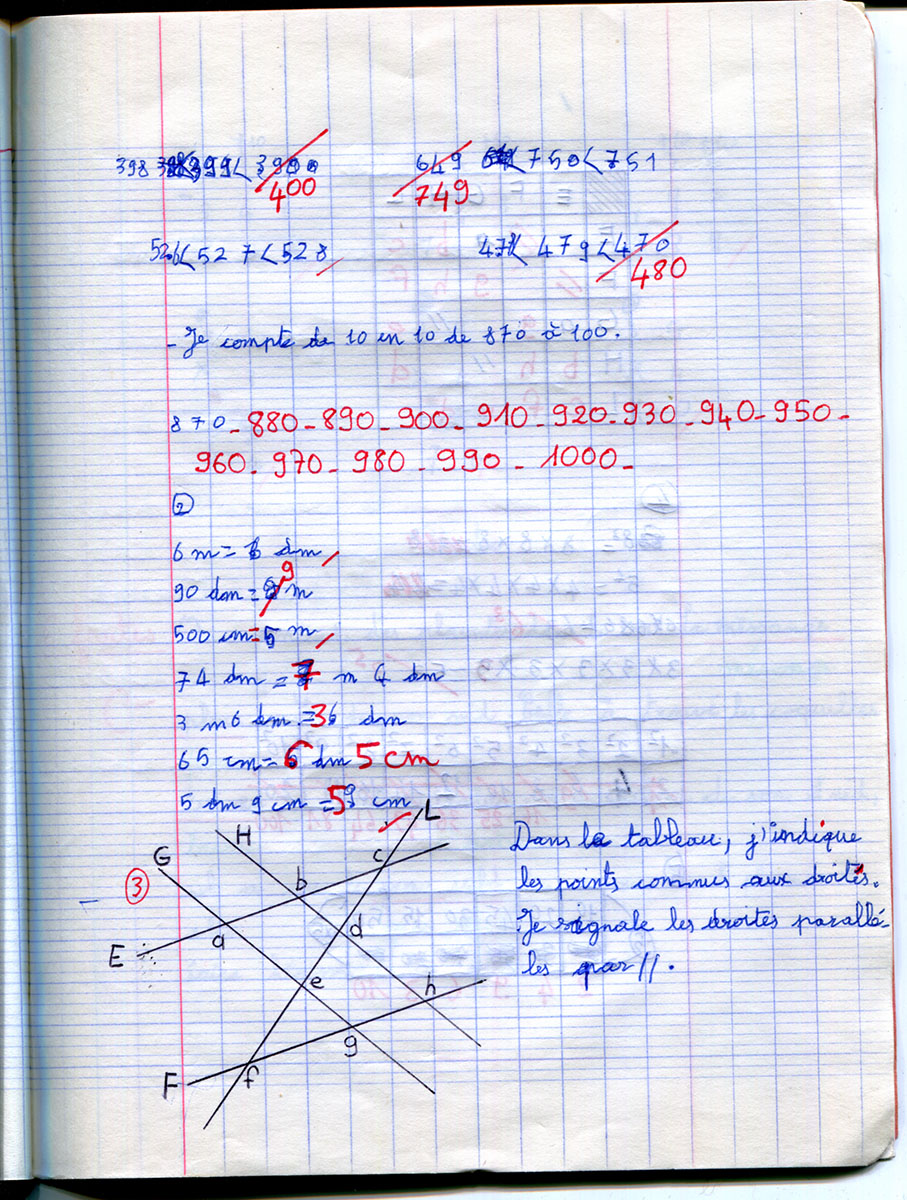 398 < 399 < 3900 649 < 750 < 751
400 749
526 < 527 < 528 478 < 479 < 470
480
- Je compte de 10 en 10 de 870 à 100.
870 - 880 - 890 - 900 - 910 - 920 - 930 - 940 - 950 -
960 - 970 - 980 - 990 - 1000 -
2
6 m = 6 dm
90 dm = 9 m
500 cm = 5 m
74 dm = 7 m 4 dm
3 m 6 dm = 36 dm
65 cm = 6 dm 5 cm
5 dm 9 cm = 59 cm
3
G H L
E F
a b c d e f g h
Dans le tableau, j'indique
les points commus aux droites.
Je signale les droites parallé-
les par //.